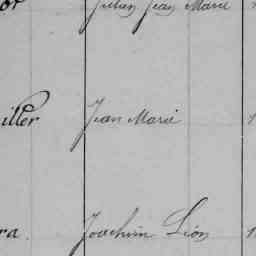 or Julien Jean Marie
iller Jean Marie
ra. Joachim Léon